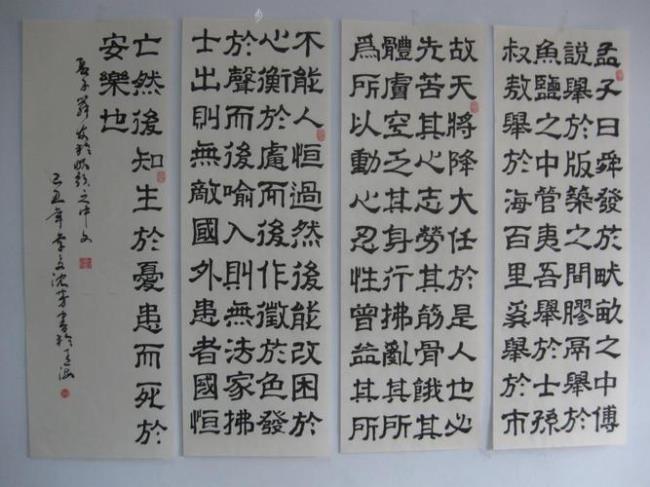 孟子曰舜發於畎畝之中傅
說舉於版築之間膠鬲舉於
魚鹽之中管夷吾舉於士孫
叔敖舉於海百里奚舉於市
故天將降大任於是人也必
先苦其心志勞其筋骨餓其
體膚空乏其身行拂亂其所
爲所以動心忍性曾益其所
不能人恒過然後能改困於
心衡於慮而後作徵於色發
於聲而後喻入則無法家拂
士出則無敵國外患者國恒
亡然後知生於憂患而死於
安樂也
孟子舜發於畎畝之中文
己丑年